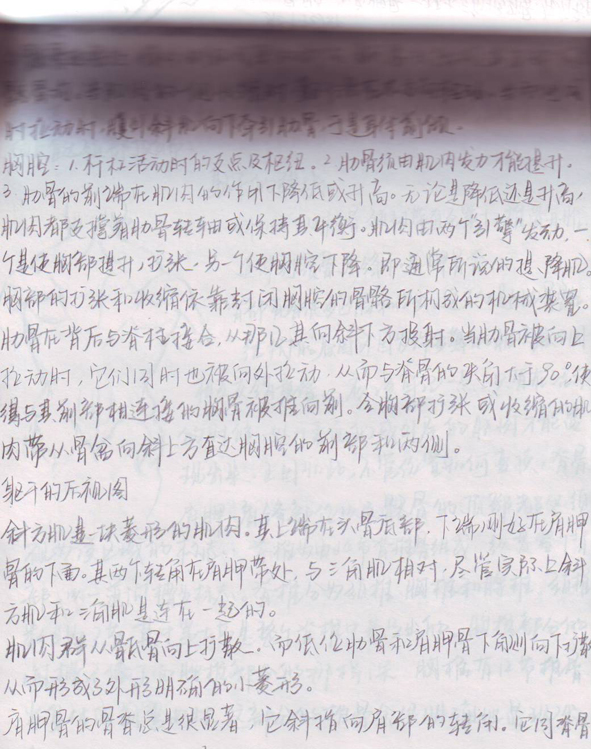 时拉动时,腹外斜肌向下牵引肋骨,于是身体前俯。
胸腔:1. 杠杆活动时的支点及枢纽。2 肋骨须由肌肉发力才能提升。
3 肋骨的前端在肌肉的作用下降低或升高。无论是降低还是升高,
肌肉都支撑着肋骨转轴或保持其平衡。肌肉由两个“引擎”发动,一
个是使胸部提升、扩张,另一个使胸腔下降,即通常所说的提、降肌。
胸部的扩张和收缩依靠封闭胸腔的骨骼所构成的机械装置。
肋骨在背后与脊柱接合,从那儿其向斜下方投射。当肋骨被向上
拉动时,它们同时也被向外拉动,从而与脊骨的夹角大于90°,使
得与其前部相连接的胸骨被推向前。令胸部扩张或收缩的肌
肉带从骨盆向斜上方直达胸腔的前部和两侧。
躯干的后视图
斜方肌是一块菱形的肌肉。其上端在头骨底部,下端刚好在肩胛
骨的下面。其两个转角在肩胛带处,与三角肌相对,尽管实际上斜
方肌和三角肌是连在一起的。
肌肉群从骶骨向上扩散,而低位肋骨和肩胛骨下角则向下扩散
从而形成了外形明确的小菱形。
肩胛骨的骨脊总是很显著,它斜指向肩部的转角。它同脊骨